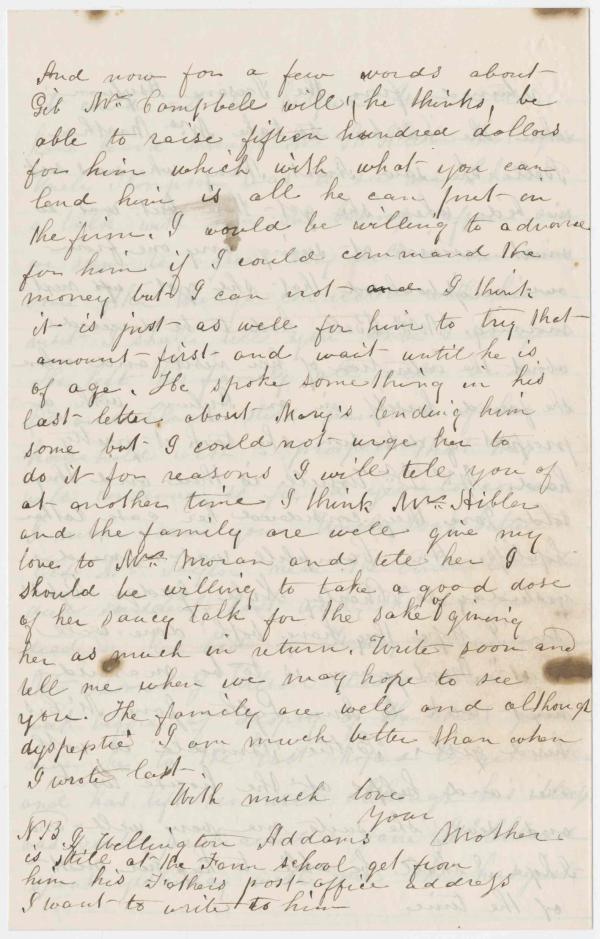 And now for a few words about
Gib Mr. Campbell will, he thinks, be
able to raise fifteen hundred dollars
for him which with what you can
lend him is all he can put in
the firm. I would be willing to advance
for him if I could command the
money but I can not and I think
it is just as well for him to try that
amount first and wait until he is
of age. He spoke something in his
last letter about Mary's lending him
some but I could not urge her to
do it for reasons I will tell you of
at another time I think Mrs. Hibler
and the family are well give my
love to Mrs. Moran and tell her I
should be willing to take a good dose
of her saucy talk for the sake of giving
her as much in return. Write soon and
tell me when we may hope to see
you. The family are well and although
dyspeptic I am much better than when
I wrote last.
With much love
Your
Mother.
N.B. If Wellington Addams
is still at the Farm school get from
him his Fathers post office address
I want to write to him